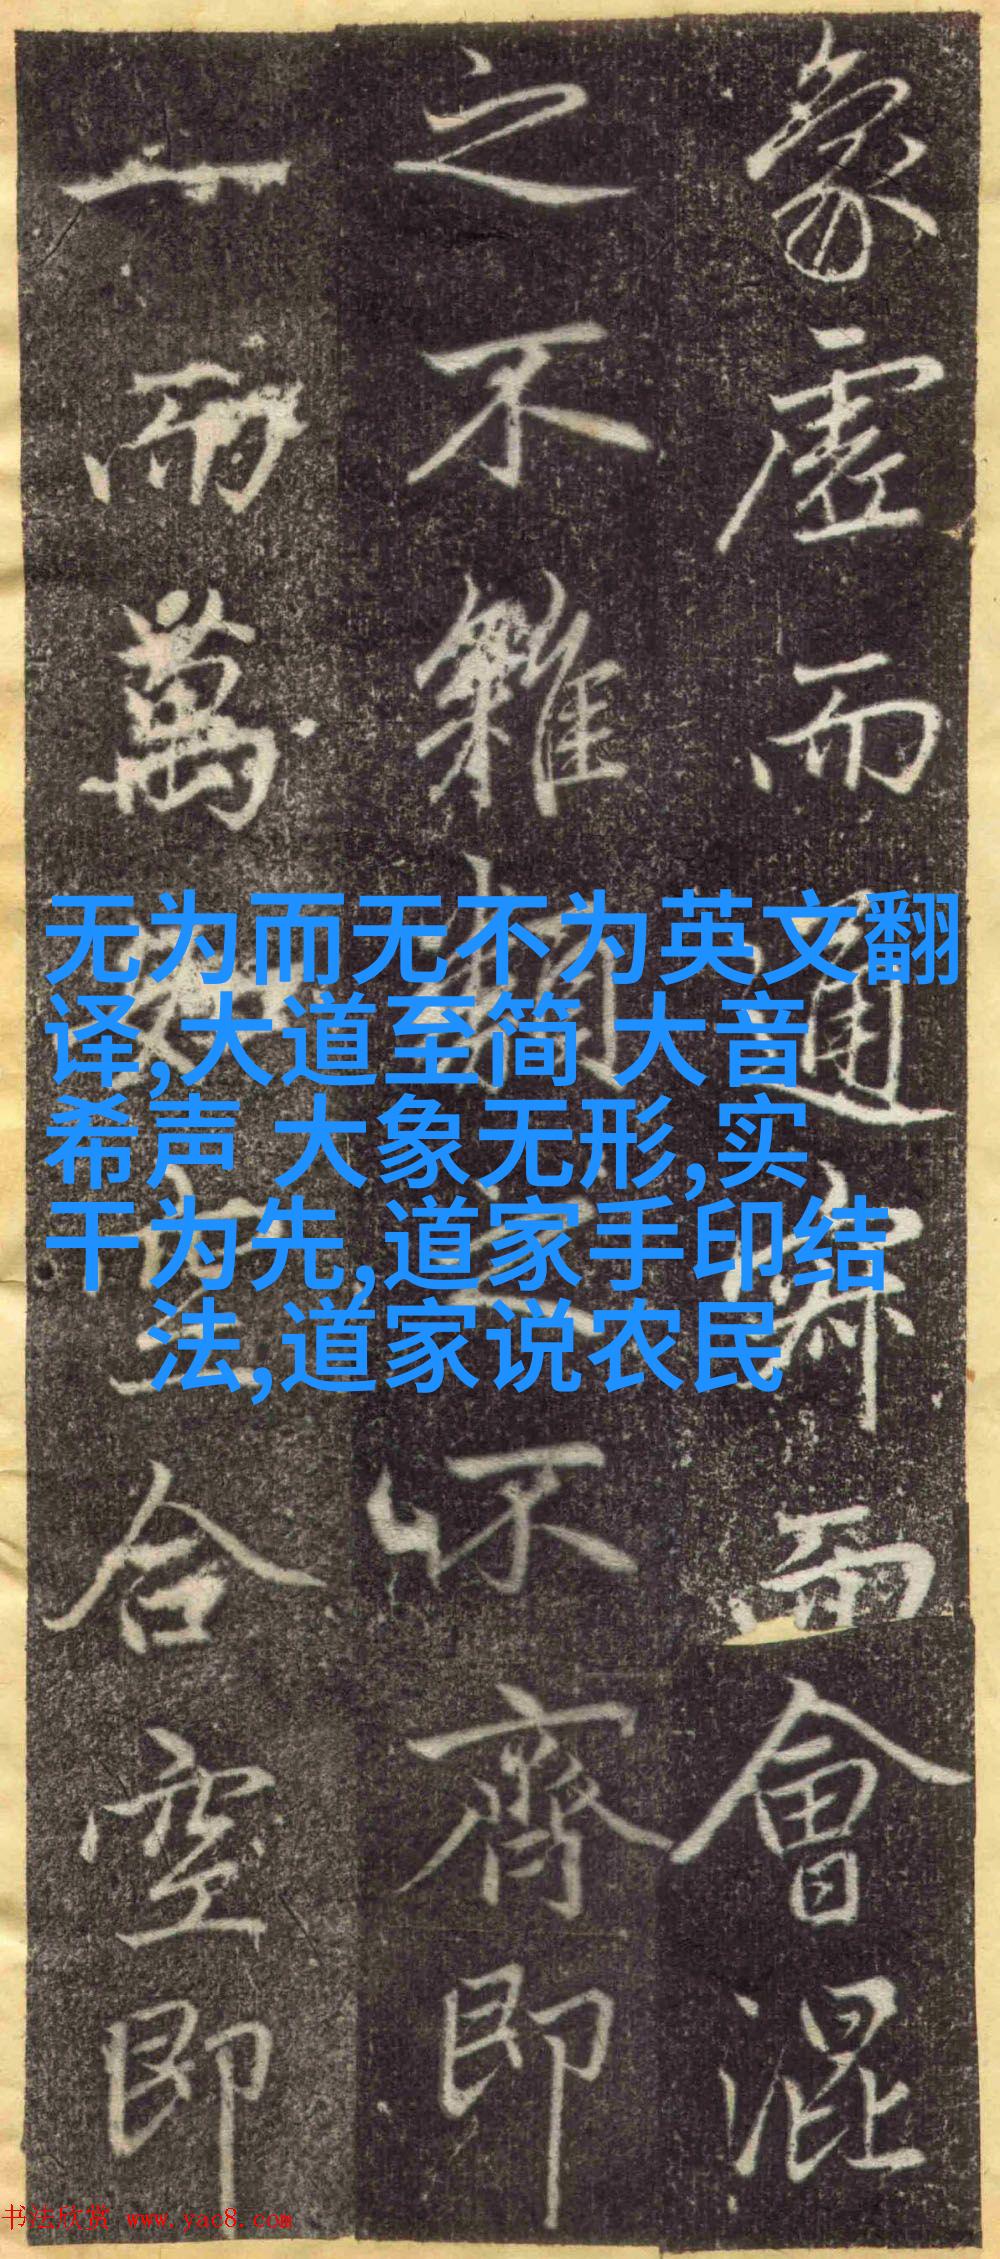 象虛而通而會混
之不雜之不齊即
一而萬合空即
无为而无不为英文翻
译,大道至简 大音
希声 大象无形,实
干为先,道家手印结
法,道家说农民
书法欣赏 www.yac8.com